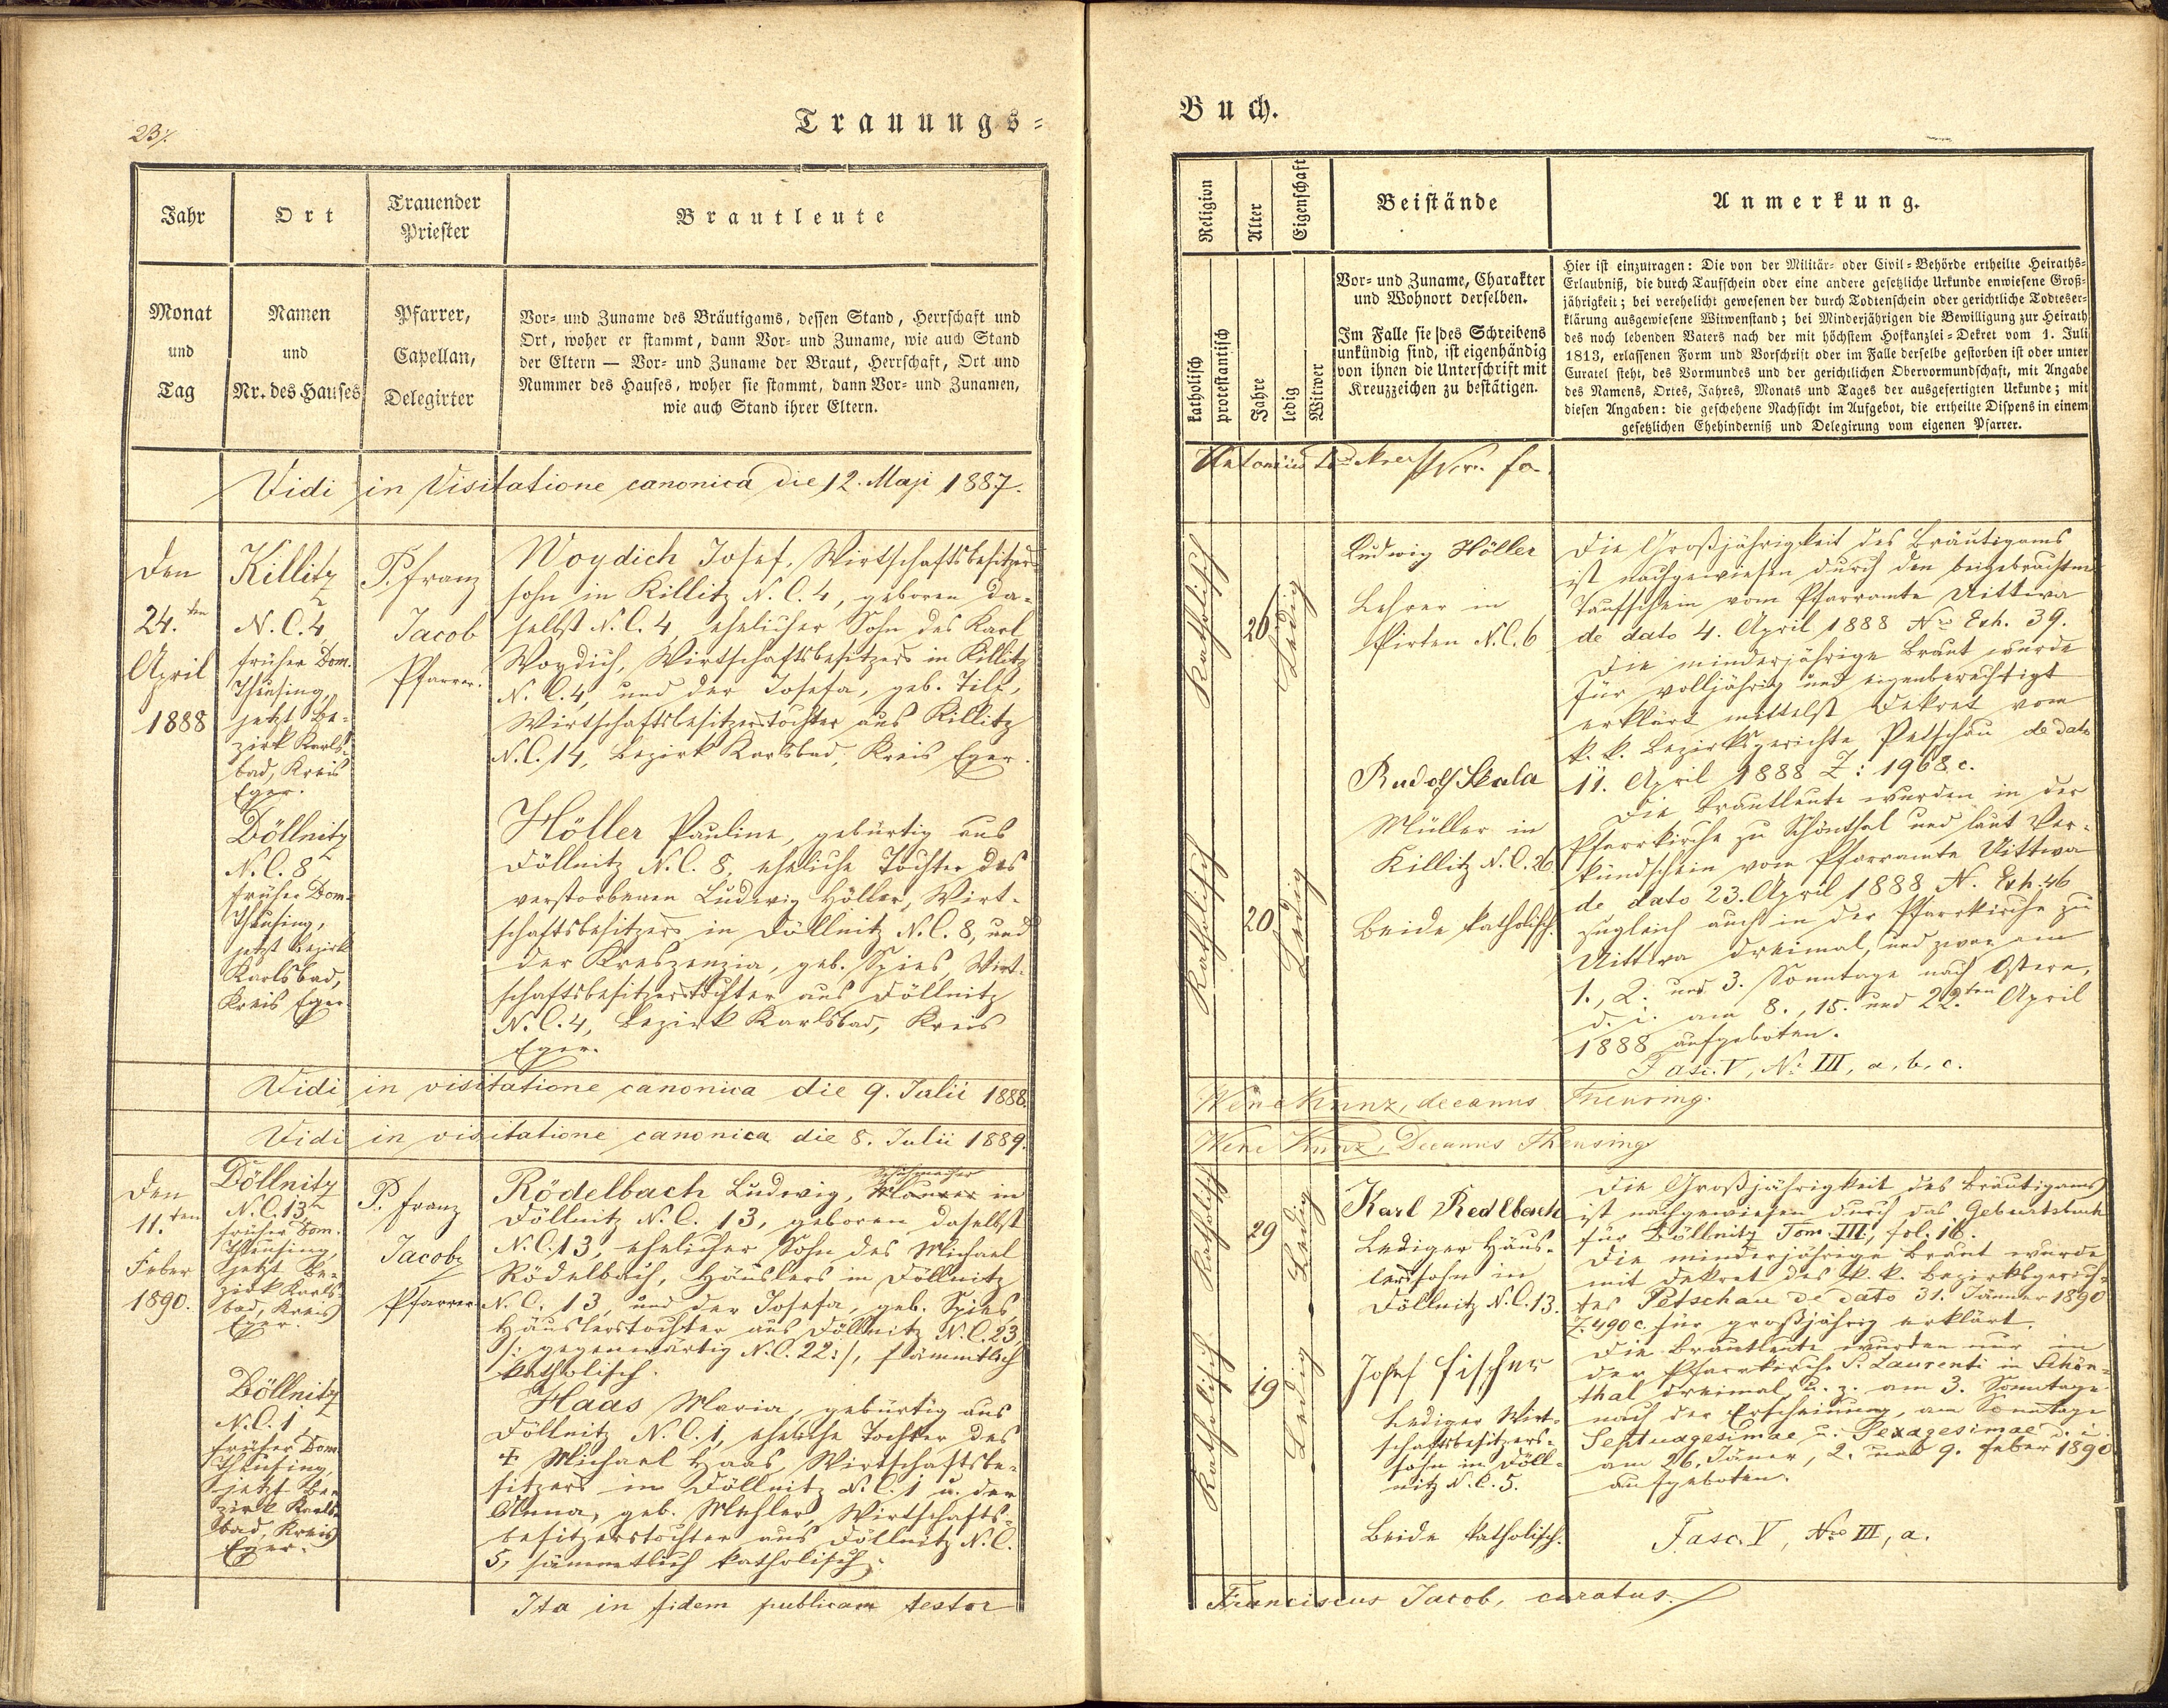 23/.
Trauungs=
Jahr
Ort
Trauender
Priester
Brautleute
Monat
und
Tag
Namen
und
Nr. des Hauses
Pfarrer,
Capellan,
Delegirter
Vor- und Zuname des Bräutigams, dessen Stand, Herrschaft und
Ort, woher er stammt, dann Vor- und Zuname, wie auch Stand
der Eltern — Vor- und Zuname der Braut, Herrschaft, Ort und
Nummer des Hauses, woher sie stammt, dann Vor- und Zunamen,
wie auch Stand ihrer Eltern.
Vidi in Visitatione canonica die 12. Maji 1887.
Den
24.ten
April
1888
Killitz
N.C. 4,
früher Dom.
Theusing,
jetzt Be-
zirk Karls-
bad, Kreis
Eger.
Döllnitz
N.C. 8
früher Dom.
Theusing,
jetzt Bezirk
Karlsbad,
Kreis Eger
P. Franz
Jacob
Pfarrer.
Woydich Josef, Wirtschaftsbesitzers-
sohn in Killitz N.C. 4, geboren da-
selbst N.C. 4, ehelicher Sohn des Karl
Woydich, Wirtschaftsbesitzers in Killitz
N.C. 4, und der Josefa, geb. Tilf,
Wirtschaftsbesitzerstochter aus Killitz
N.C. 14, Bezirk Karlsbad, Kreis Eger.
Höller Pauline, gebürtig aus
Döllnitz N.C. 8, eheliche Tochter des
verstorbenen Ludwig Höller, Wirt-
schaftsbesitzers in Döllnitz N.C. 8, und
der Kreszenzia, geb. Spies, Wirt-
schaftsbesitzerstochter aus Döllnitz
N.C. 4, Bezirk Karlsbad, Kreis
Eger.
Vidi in visitatione canonica die 9. Julii 1888.
Vidi in visitatione canonica die 8. Julii 1889.
Den
11.ten
Feber
1890.
Döllnitz
N.C. 13
früher Dom.
Theusing,
jetzt Be-
zirk Karls-
bad, Kreis
Eger.
Döllnitz
N.C. 1
früher Dom.
Theusing,
jetzt Be-
zirk Karls-
bad, Kreis
Eger.
P. Franz
Jacob,
Pfarrer.
Schuhmacher
Rödelbach Ludwig, Maurer in
Döllnitz N.C. 13, geboren daselbst
N.C. 13, ehelicher Sohn des Michael
Rödelbach, Häuslers in Döllnitz
N.C. 13, und der Josefa, geb. Spies,
Häuslerstochter aus Döllnitz N.C. 23,
/: gegenwärtig N.C. 22:/, sämmtlich
katholisch.
Haas Maria, gebürtig aus
Döllnitz N.C. 1, eheliche Tochter des
† Michael Haas, Wirtschaftsbe-
sitzers in Döllnitz N.C. 1 u. der
Anna, geb. Mehler, Wirtschafts-
besitzerstochter aus Döllnitz N.C.
5, sämmtlich katholisch.
Ita in fidem publicam testor
Buch.
Religion
Alter
Eigenschaft
Beistände
Anmerkung.
katholisch
protestantisch
Jahre
ledig
Witwer
Vor- und Zuname, Charakter
und Wohnort derselben.
Im Falle sie des Schreibens
unkündig sind, ist eigenhändig
von ihnen die Unterschrift mit
Kreuzzeichen zu bestätigen.
Hier ist einzutragen: Die von der Militär- oder Civil-Behörde ertheilte Heiraths-
Erlaubniß, die durch Taufschein oder eine andere gesetzliche Urkunde enwiesene Groß-
jährigkeit; bei verehelicht gewesenen der durch Todtenschein oder gerichtliche Todteser-
klärung ausgewiesene Witwenstand; bei Minderjährigen die Bewilligung zur Heirath
des noch lebenden Vaters nach der mit höchstem Hofkanzlei-Dekret vom 1. Juli
1813, erlassenen Form und Vorschrift oder im Falle derselbe gestorben ist oder unter
Curatel steht, des Vormundes und der gerichtlichen Obervormundschaft, mit Angabe
des Namens, Ortes, Jahres, Monats und Tages der ausgefertigten Urkunde; mit
diesen Angaben: die geschehene Nachsicht im Aufgebot, die ertheilte Dispens in einem
gesetzlichen Ehehinderniß und Delegirung vom eigenen Pfarrer.
Antonius
Katholisch
26
Ledig
Katholisch
20
Ledig
Ludwig Höller
Lehrer in
Pirten N.C. 6
Rudolf Skala
Müller in
Killitz N.C. 26
Beide katholisch.
Die Großjährigkeit des Bräutigams
ist nachgewiesen durch den beigebrachten
Taufschein vom Pfarramte Uittwa
de dato 4. April 1888 No Exh. 39.
Die minderjährige Braut wurde
für volljährig und eigenberechtigt
erklärt mittelst Dekret vom
k. k. Bezirksgerichte Petschau de dato
11. April 1888 Z: 1968 c.
Die Brautleute wurden in der
Pfarrkirche zu Schönthal und laut Ver-
kündschein vom Pfarramte Uittwa
de dato 23. April 1888 N. Exh. 46
zugleich auch in der Pfarrkirche zu
Uittwa dreimal, und zwar am
1., 2. und 3. Sonntage nach Ostern,
d. i. am 8., 15. und 22.ten April
1888 aufgeboten.
Fasc. V, No III, a, b, c.
Wenc Kunz, decanus Theusing.
Wenc Kunz, Decanus Theusing
Katholisch
29
Ledig
Katholisch
19
Ledig
Karl Redlbach
Lediger Häus-
lerssohn in
Döllnitz N.C. 13.
Josef Fischer
Lediger Wirt-
schaftsbesitzers-
sohn in Döll-
nitz N.C. 5.
Beide katholisch.
Die Großjährigkeit des Bräutigams
ist nachgewiesen durch das Geburtsbuch
für Döllnitz Tom. III, fol. 16.
Die minderjährige Braut wurde
mit Dekret des k. k. Bezirksgerich-
tes Petschau de dato 31. Jänner 1890
Z. 490 c. für großjährig erklärt.
Die Brautleute wurden nur in
der Pfarrkirche S. Laurenti in Schön-
thal dreimal, u. z. am 3. Sonntage
nach der Erscheinung, am Sonntage
Septuagesimae u. Sexagesimae d. i.
am 26. Jäner, 2. und 9. Feber 1890
aufgeboten.
Fasc. V, Nro III, a.
Franciscus Jacob, curatus.